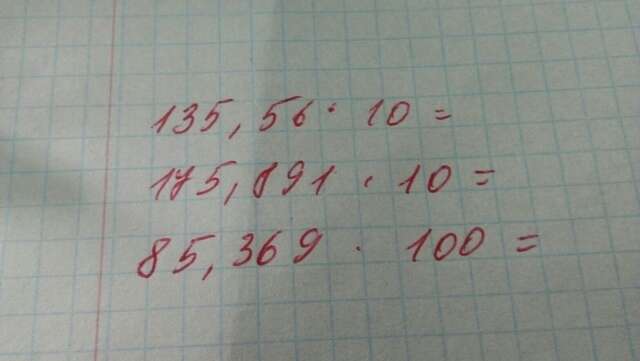 135,56 · 10 =
175,891 · 10 =
85,369 · 100 =